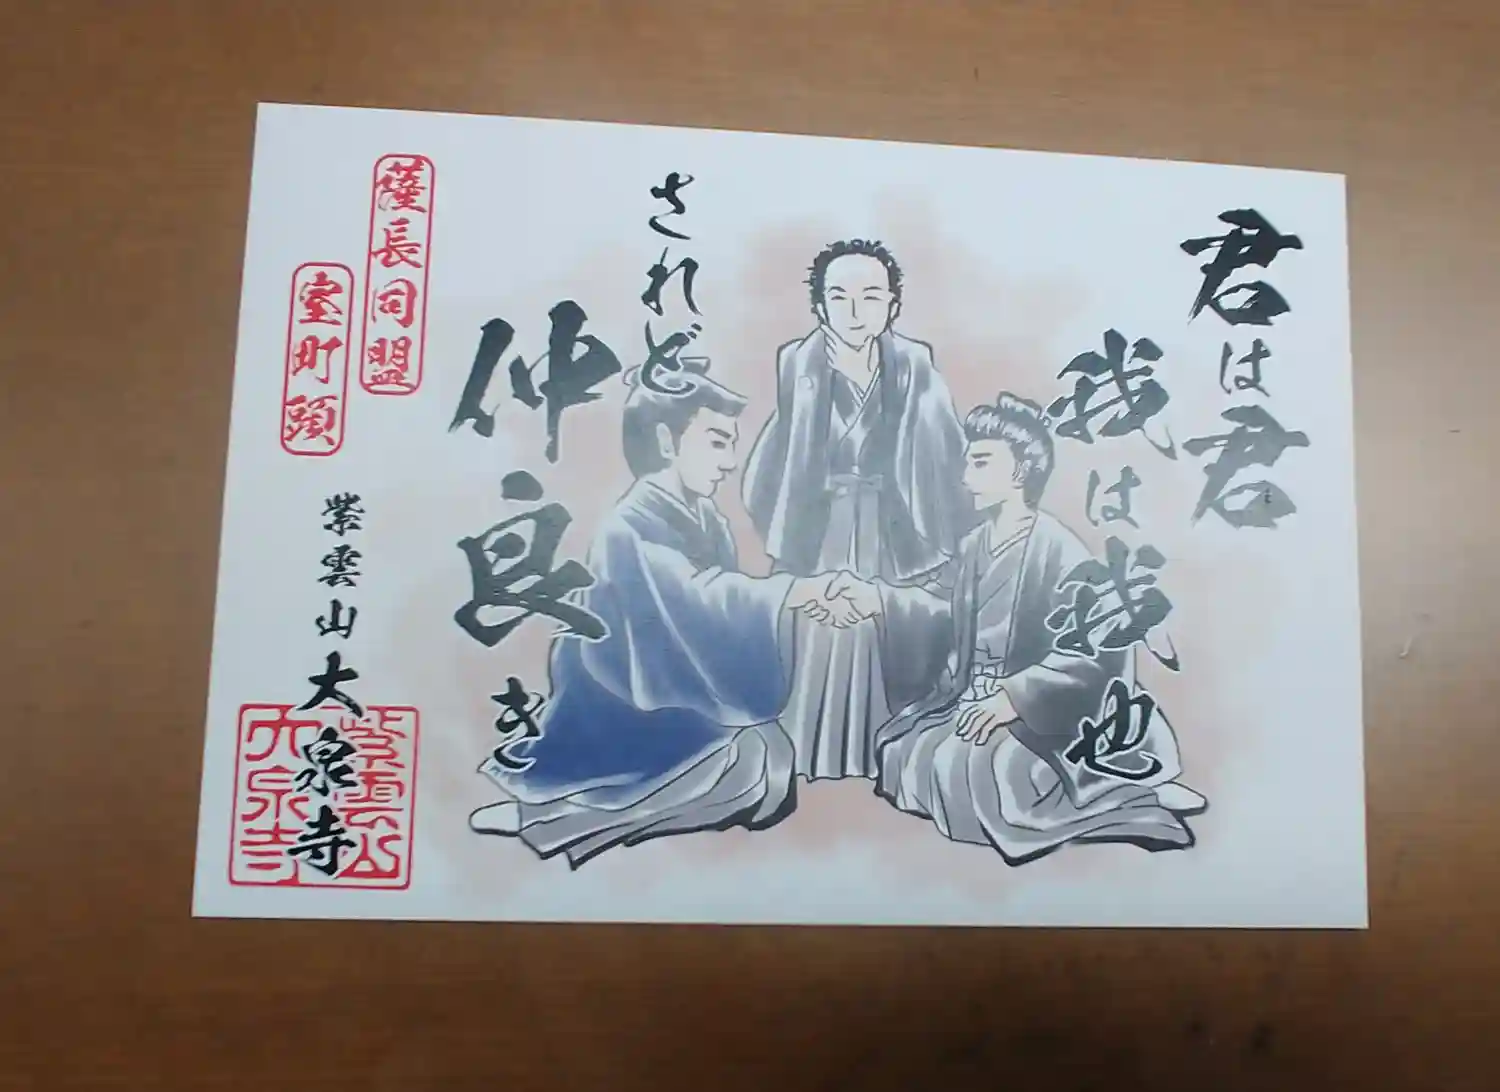 君は君
我は我也
されど
仲良き
薩長同盟
室町頭
紫雲山大泉寺
紫雲山
大泉寺